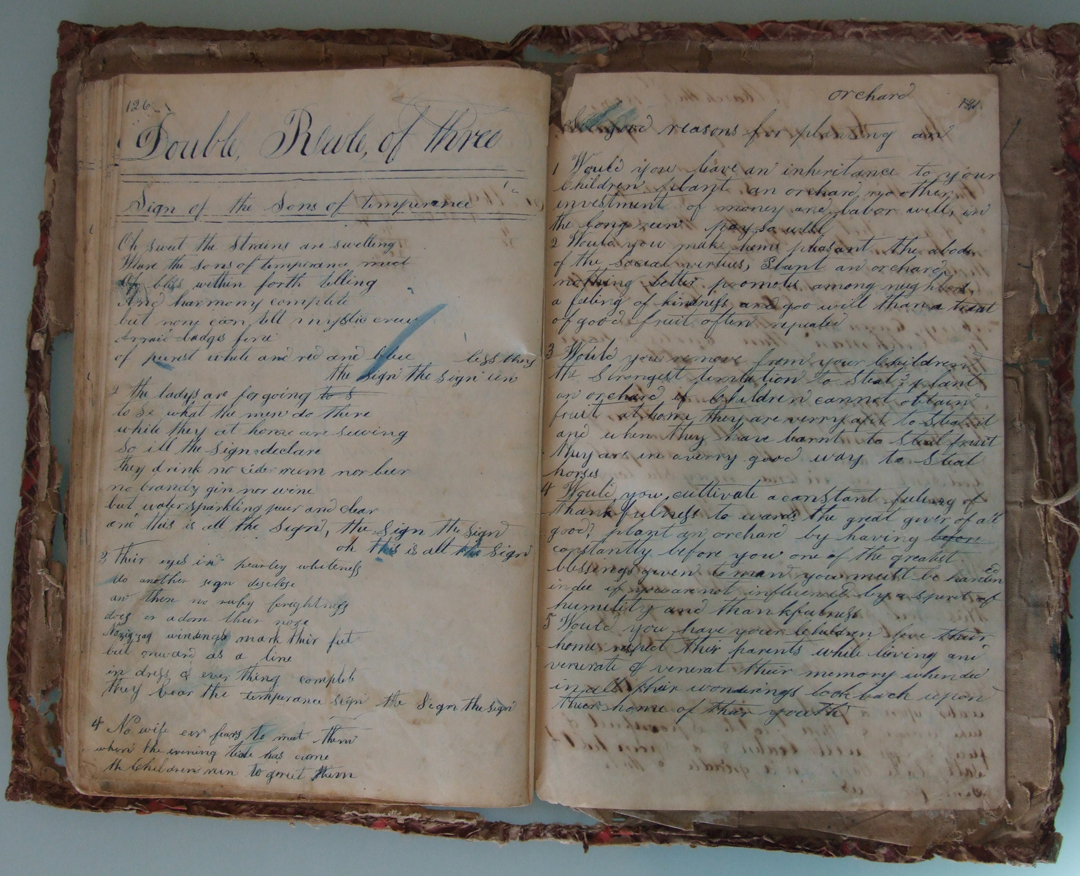 126
Double, Rule, of three
Sign of the Sons of temperance
Oh swat the strains are swelling
Whare the sons of temperance meet
bliss within forth telling
And harmony complete
but non can tell mystic crew
Lodges find
of purest white and red and blue less they
the sign the sign in
2 the ladys are for going to s
to se what the men do there
while they at home are sewing
So ill the sign declare
they drink no sider rum nor beer
no brandy gin nor wine
but water sparkling puer and clear
and this is all the sign, the sign the sign
oh this is all the sign
3 their eyes in pearley whiteness
do another sign disclose
an there no ruby brightness
dos er adorn their noze
No zigzag windings mark their feet
but onward as a line
in dress & ever thing complete
they bear the temperance sign the sign the sign
4 No wife eer fears to meet them
when the evening tide has come
the Children run to greet them
orchard
reasons for planting an
1 Would you leave an inheritance to your
Children plant an orchard, no other,
investment of money and labor will, in
the long run pay so well
2 Would you make home pleasant the abode
of the social virtues, plant an orchard,
nothing better promote among neighbors
a feling of kindness, and goo will than a treat
of good fruit often repeated
3 Would you remove from your Children
the strongest temtation to steal; plant
an orchard if children cannot obtain
fruit at home they are verry apt to steal it
and when they have larnt to steal fruit
they are in a verry good way to steal
horses
4 Would you, cultivate a constant feeling of
thankfulness to wards the great giver of all
good, plant an orchard by having before
constantly before you one of the greatest
blessings given to man you must be harden
indee if you are not influenced by a spirit of
humility and thankfulness
5 Would you have your Children love their
home respect their parents while living and
venerate & venerat their memory when ded
in all their wonderings look back uppon
their home of their youth